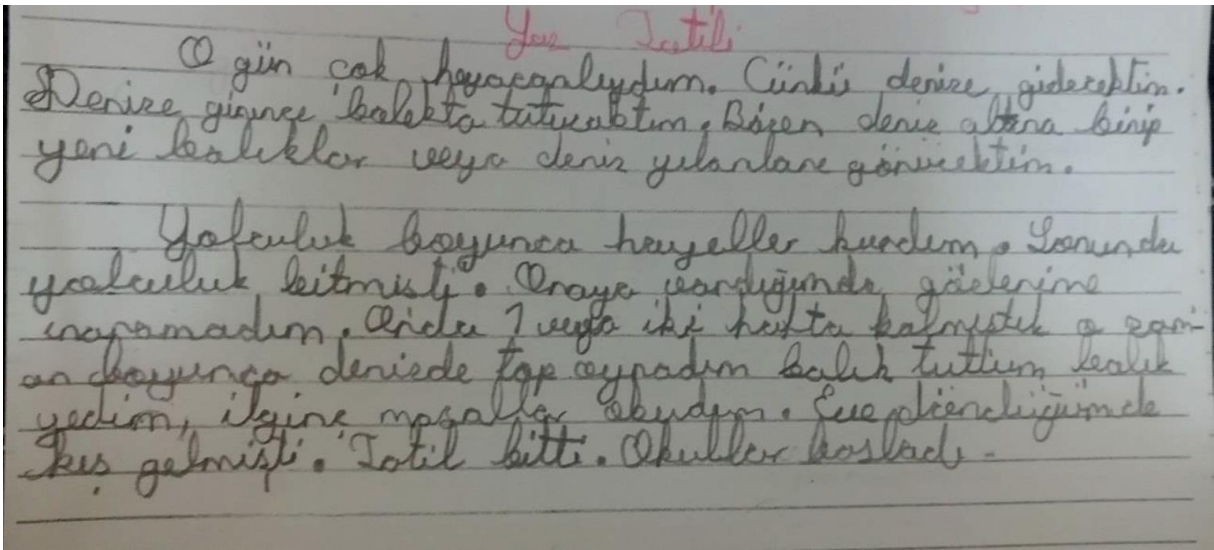 Yaz Tatili
O gün çok heyacanlıydım. Çünkü denize gidecektim.
Denize girince balıkta tutucaktım. Bazen deniz altına binip
yeni balıklar veya deniz yılanları görücektim.
Yolculuk boyunca hayeller kurdum. Sonunda
yolculuk bitmişti. Oraya vardığımda gözlerime
inanamadım. Orda 1 veya iki hafta kalmıştık o zam-
an boyunca denizde top oynadım balık tuttum balık
yedim, ilginç masallar okudum. Eve döndüğümde
kış gelmişti. Tatil bitti. Okullar başladı.